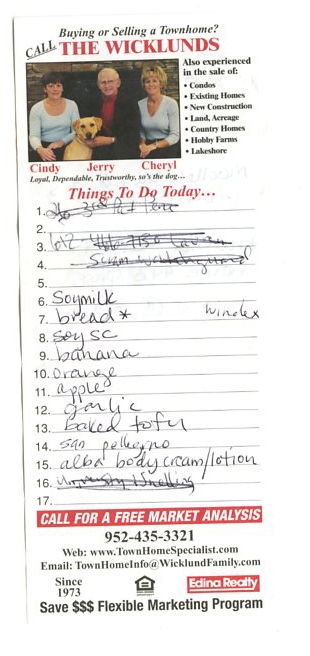 Buying or Selling a Townhome?
CALL THE WICKLUNDS
Also experienced
in the sale of:
• Condos
• Existing Homes
• New Construction
• Land, Acreage
• Country Homes
• Hobby Farms
• Lakeshore
Cindy Jerry Cheryl
Loyal, Dependable, Trustworthy, so's the dog...
Things To Do Today...
1.
2.
3. 612
4.
5.
6. Soymilk
7. bread* windex
8. soy sc
9. banana
10. orange
11. apple
12. garlic
13. baked tofu
14. san pellegrno
15. alba body cream/lotion
16. University Snelling
17.
CALL FOR A FREE MARKET ANALYSIS
952-435-3321
Web: www.TownHomeSpecialist.com
Email: TownHomeInfo@WicklundFamily.com
Since
1973
Edina Realty
Save $$$ Flexible Marketing Program